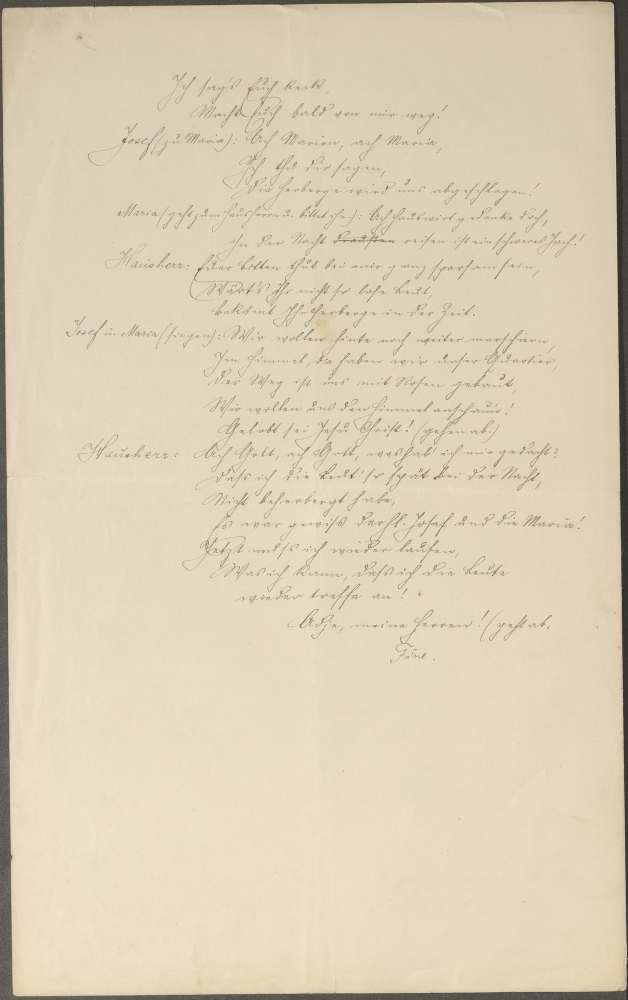 Ich sag's Euch keck,
Macht Euch bald von mir weg!
Josef (zu Maria): Ach Maria, ach Maria,
Ich thu dir sagen,
Die Herberge wird uns abgeschlagen!
Maria (geht zum Hausherrn u. bittet ihn): Ach Hauswirt gedenke doch,
In der Nacht draußen reisen ist ein schweres Joch!
Hausherr: Euer bitten thut bei mir ganz sparsam sein,
Wär't Ihr nicht so lose Leut,
bekämt Ihr Herberge in der Zeit.
Josef u. Maria (singen): Wir wollen heute noch weiter marschieren,
Im Himmel, da haben wir unser Quartier,
Der Weg ist uns mit Rosen gebaut,
Wir wollen uns den Himmel anschau'n!
Gelobt sei Jesu Christ! (gehen ab.)
Hausherr: Ach Gott, ach Gott, was hab' ich mir gedacht?
Dass ich die Leut' so spät bei der Nacht,
Nicht beherbergt habe,
Es war gewiß der hl. Josef und die Maria!
Jetzt muss ich wieder laufen,
Was ich kann, dass ich die Leute
wieder treffe an!
Adje, meine Herren! (geht ab.
Fine.